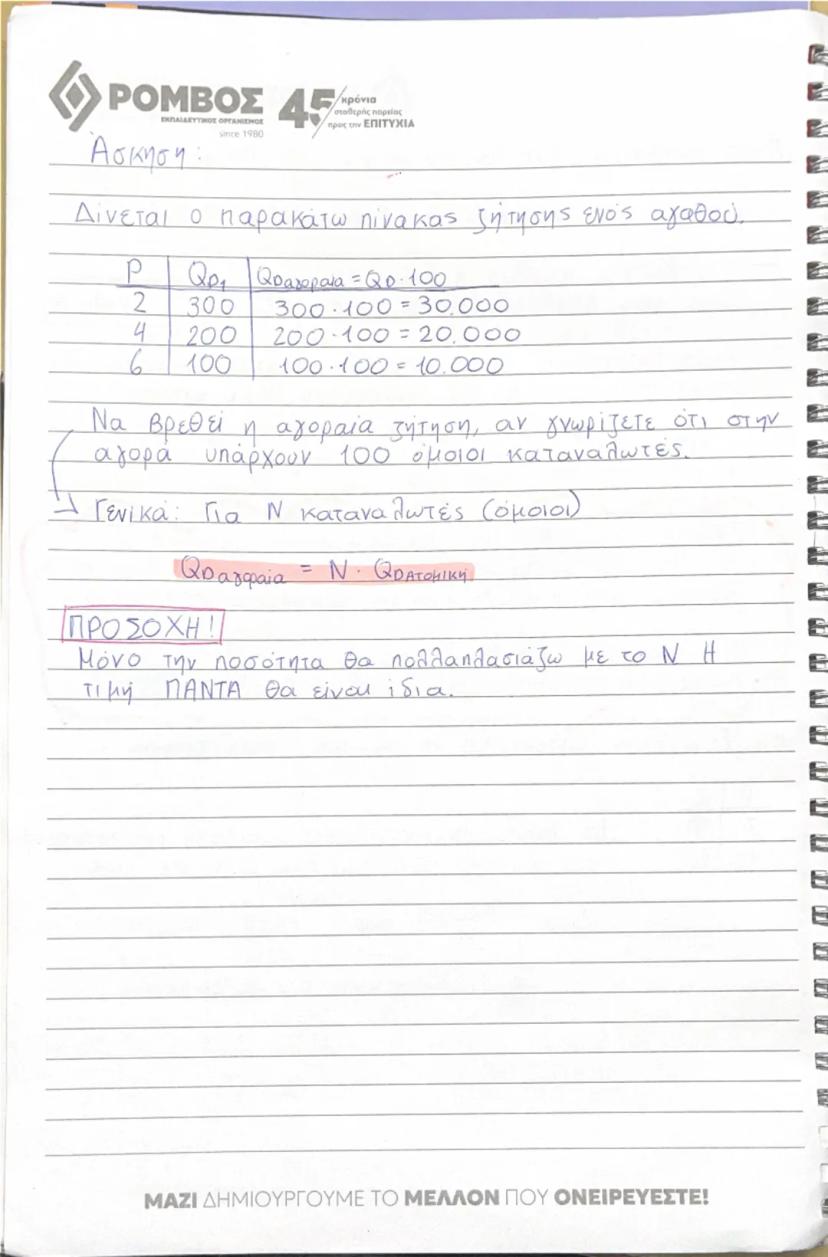 ΡΟΜΒΟΣ
ΕΚΠΑΙΔΕΥΤΙΚΟΣ ΟΡΓΑΝΙΣΜΟΣ
since 1980
45 χρόνια
σταθερής πορείας
προς την ΕΠΙΤΥΧΙΑ
Άσκηση:
Δίνεται ο παρακάτω πίνακας ζήτησης ενός αγαθού.
P QD1 QDαγοραία = QD · 100
2 300 300 · 100 = 30.000
4 200 200 · 100 = 20.000
6 100 100 · 100 = 10.000
Να βρεθεί η αγοραία ζήτηση, αν γνωρίζετε ότι στην
αγορά υπάρχουν 100 όμοιοι καταναλωτές.
Γενικά: Για Ν καταναλωτές (όμοιοι)
QDαγοραία = N · QDΑΤΟΜΙΚή
ΠΡΟΣΟΧΗ!
Μόνο την ποσότητα θα πολλαπλασιάζω με το Ν Η
τιμή ΠΑΝΤΑ θα είναι ίδια.
ΜΑΖΙ ΔΗΜΙΟΥΡΓΟΥΜΕ ΤΟ ΜΕΛΛΟΝ ΠΟΥ ΟΝΕΙΡΕΥΕΣΤΕ!